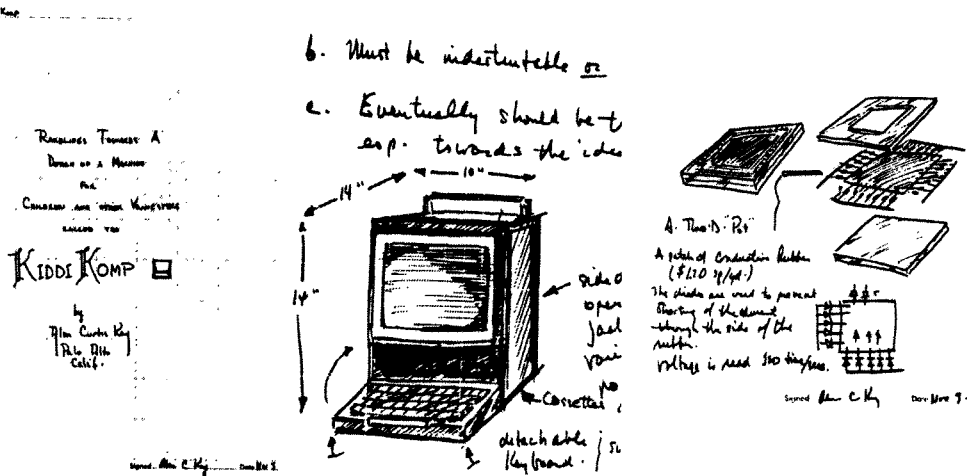 Komp
Ramblings Towards A
Design of a Machine
For
Children and other
called the
KIDDI KOMP
by
Alan Curtis Kay
Palo Alto
Calif.
Signed Alan C Kay Date Nov
b. Must be indestructable or
c. Eventually should be t
esp. towards the idea
14"
10"
14"
side
open
jack
po
Cassettes
detachable
Keyboard.
A. "Pot"
A patch of Conductive Rubber
($1.20 sq/yd.)
The diodes are used to prevent
Shorting of the
through the side of the
rubber.
Voltage is read
Signed Alan C Kay Date Nov 9